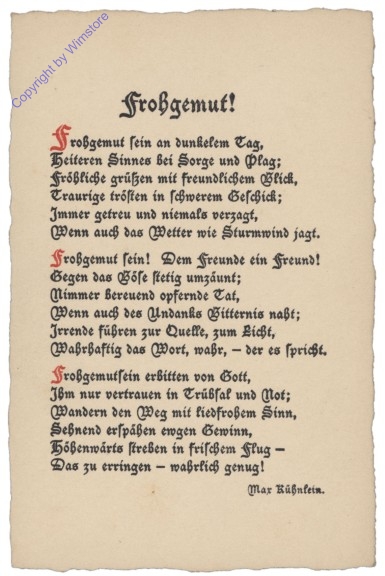 Copyright by Wimstore
Frohgemut!
Frohgemut sein an dunkelem Tag,
Heiteren Sinnes bei Sorge und Plag;
Fröhliche grüßen mit freundlichem Blick,
Traurige trösten in schwerem Geschick;
Immer getreu und niemals verzagt,
Wenn auch das Wetter wie Sturmwind jagt.
Frohgemut sein! Dem Freunde ein Freund!
Gegen das Böse stetig umzäunt;
Nimmer bereuend opfernde Tat,
Wenn auch des Undanks Bitternis naht;
Irrende führen zur Quelle, zum Licht,
Wahrhaftig das Wort, wahr, – der es spricht.
Frohgemutsein erbitten von Gott,
Ihm nur vertrauen in Trübsal und Not;
Wandern den Weg mit liedfrohem Sinn,
Sehnend erspähen ewgen Gewinn,
Höhenwärts streben in frischem Flug –
Das zu erringen – wahrlich genug!
Max Kühnlein.